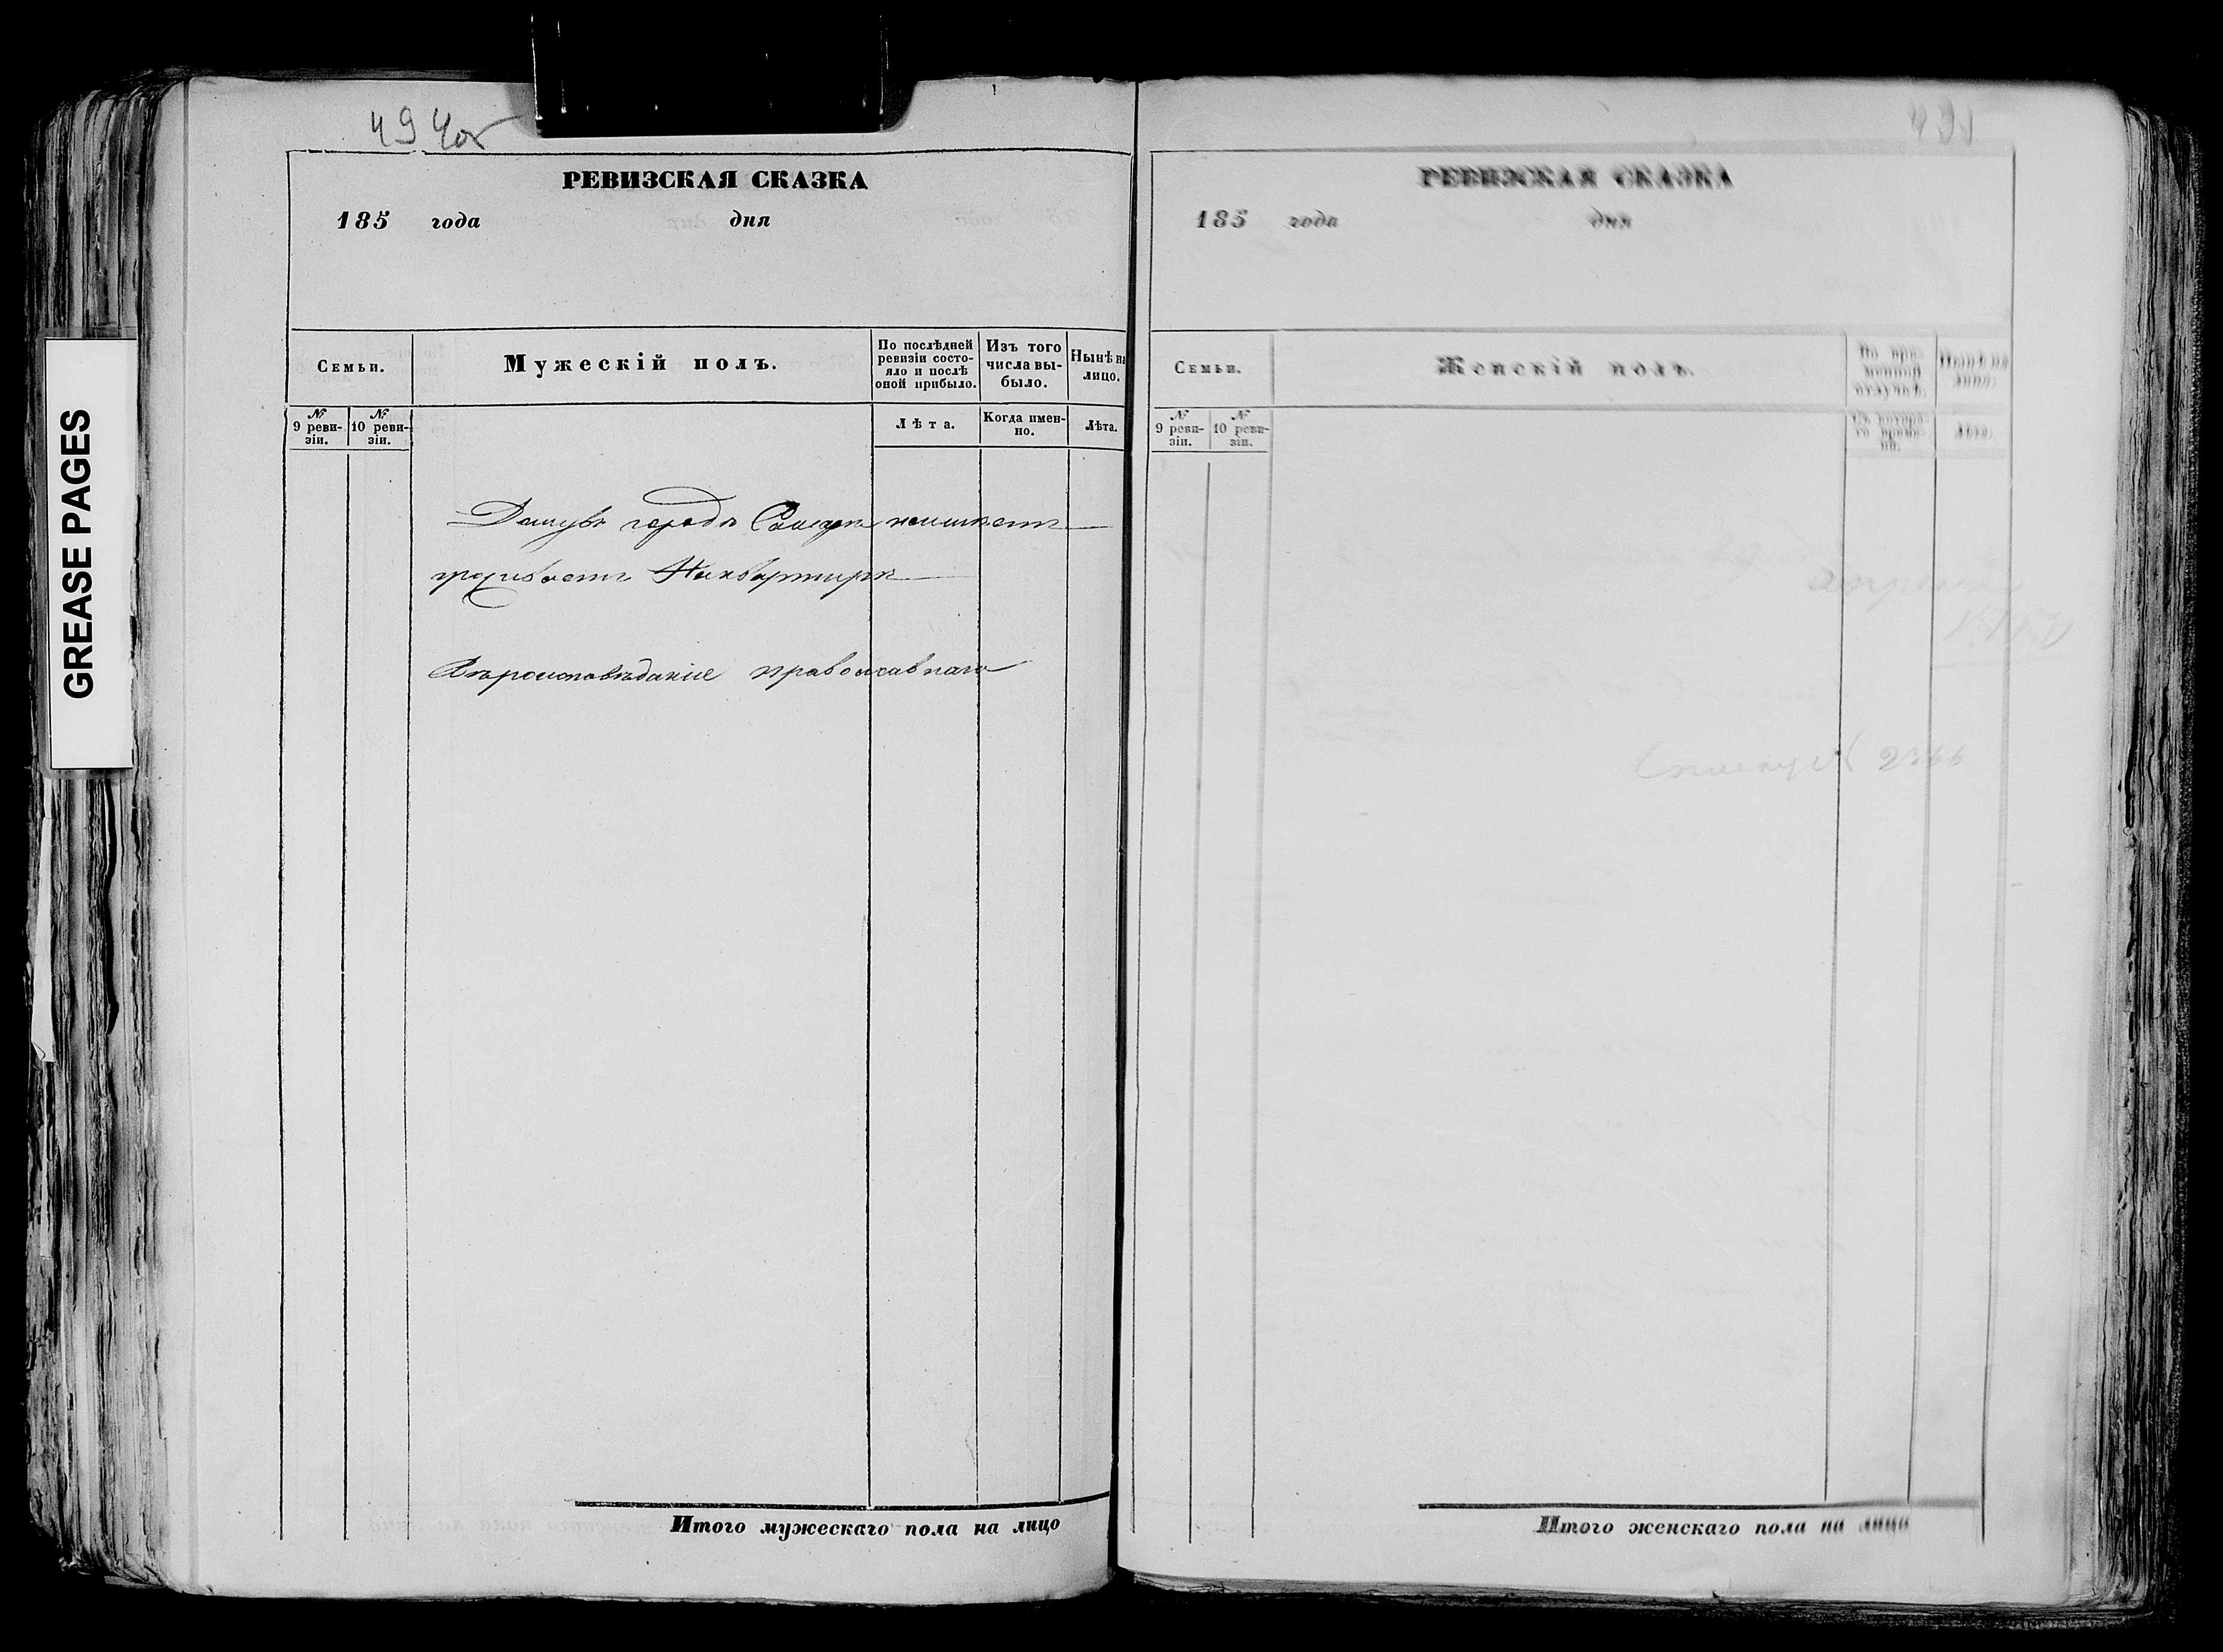 494об
РЕВИЗСКАЯ СКАЗКА
185 года дня
Семьи.
Мужескій полъ.
По послѣдней ревизіи состо-
яло и послѣ оной прибыло.
Изъ того числа вы-
было.
Нынѣ на лицо.
№ 9 реви-
зіи.
№ 10 реви-
зіи.
Лѣта.
Когда имен-
но.
Лѣта.
города неимѣетъ
Наквартирѣ
Вѣроисповѣданіе православнаго
Итого мужескаго пола на лицо
РЕВИЗСКАЯ СКАЗКА
185 года дня
Семьи.
Женскій полъ.
Во вре-
менной отлучкѣ.
Нынѣ на лицо.
№ 9 реви-
зіи.
№ 10 реви-
зіи.
Съ котора-
го време-
ни.
Лѣта.
Итого женскаго пола на лицо
GREASE PAGES